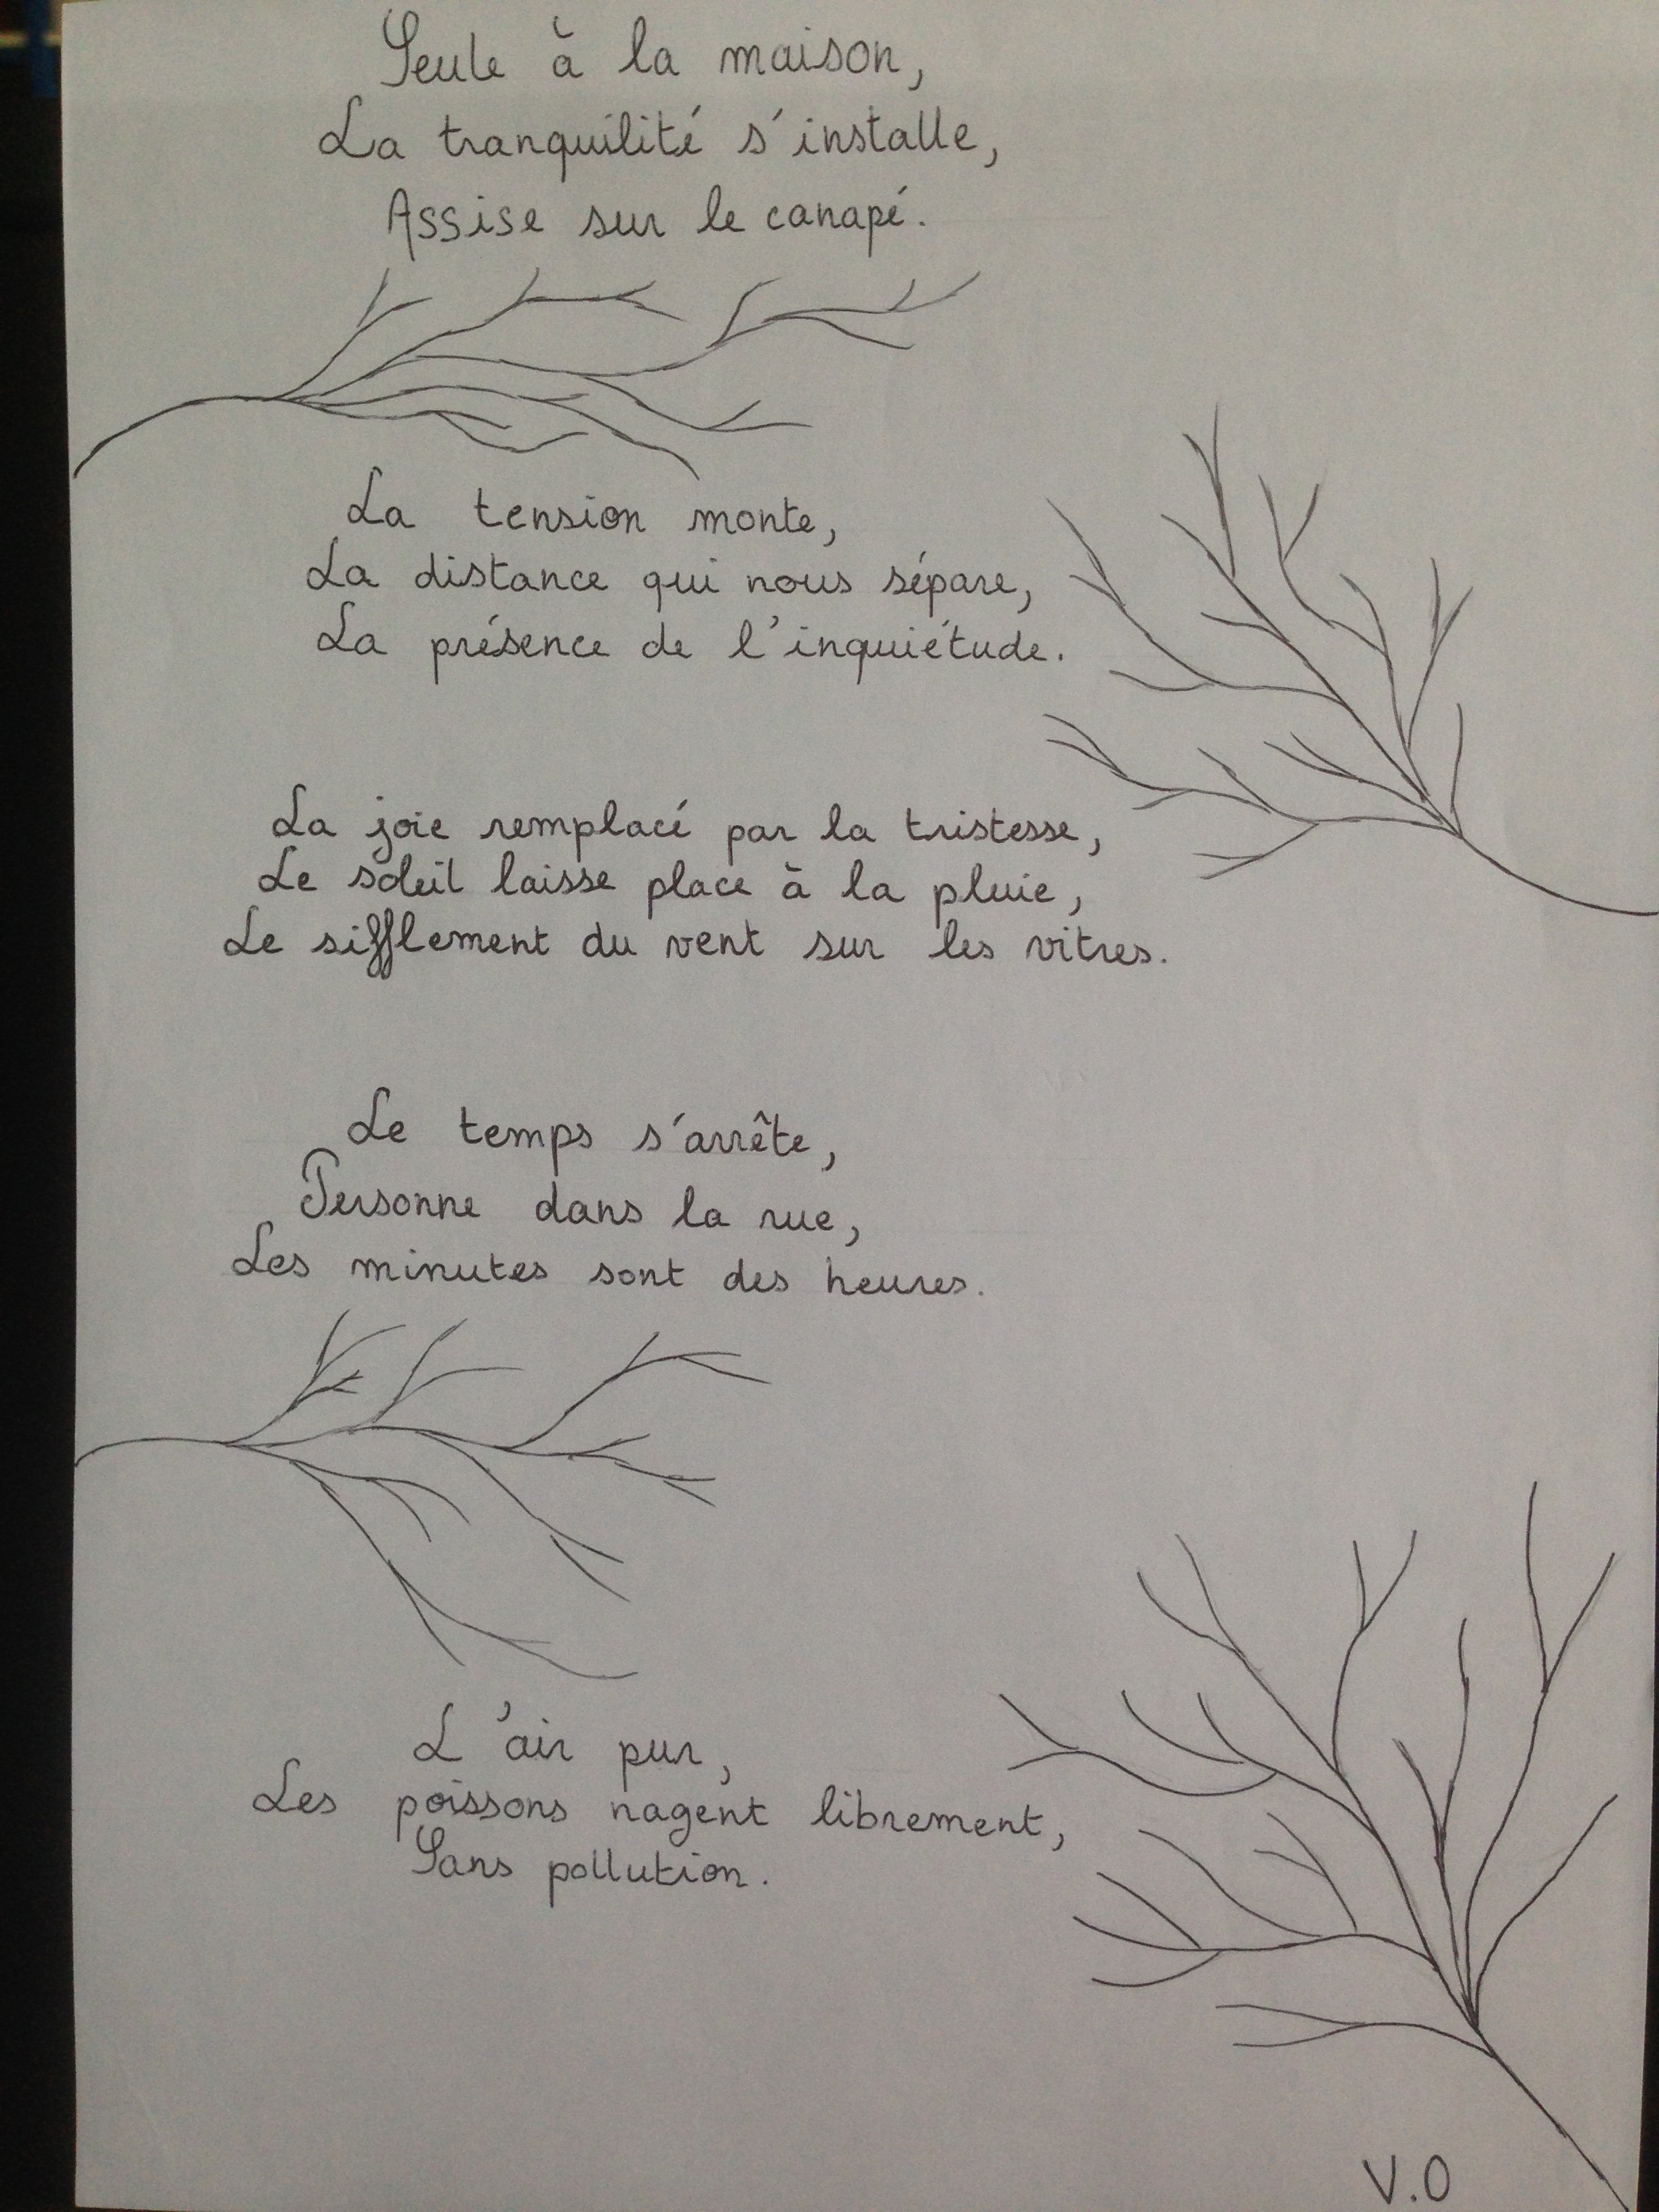 Seule à la maison,
La tranquilité s'installe,
Assise sur le canapé.
La tension monte,
La distance qui nous sépare,
La présence de l'inquiétude.
La joie remplacé par la tristesse,
Le soleil laisse place à la pluie,
Le sifflement du vent sur les vitres.
Le temps s'arrête,
Personne dans la rue,
Les minutes sont des heures.
L'air pur,
Les poissons nagent librement,
Sans pollution.
V.O